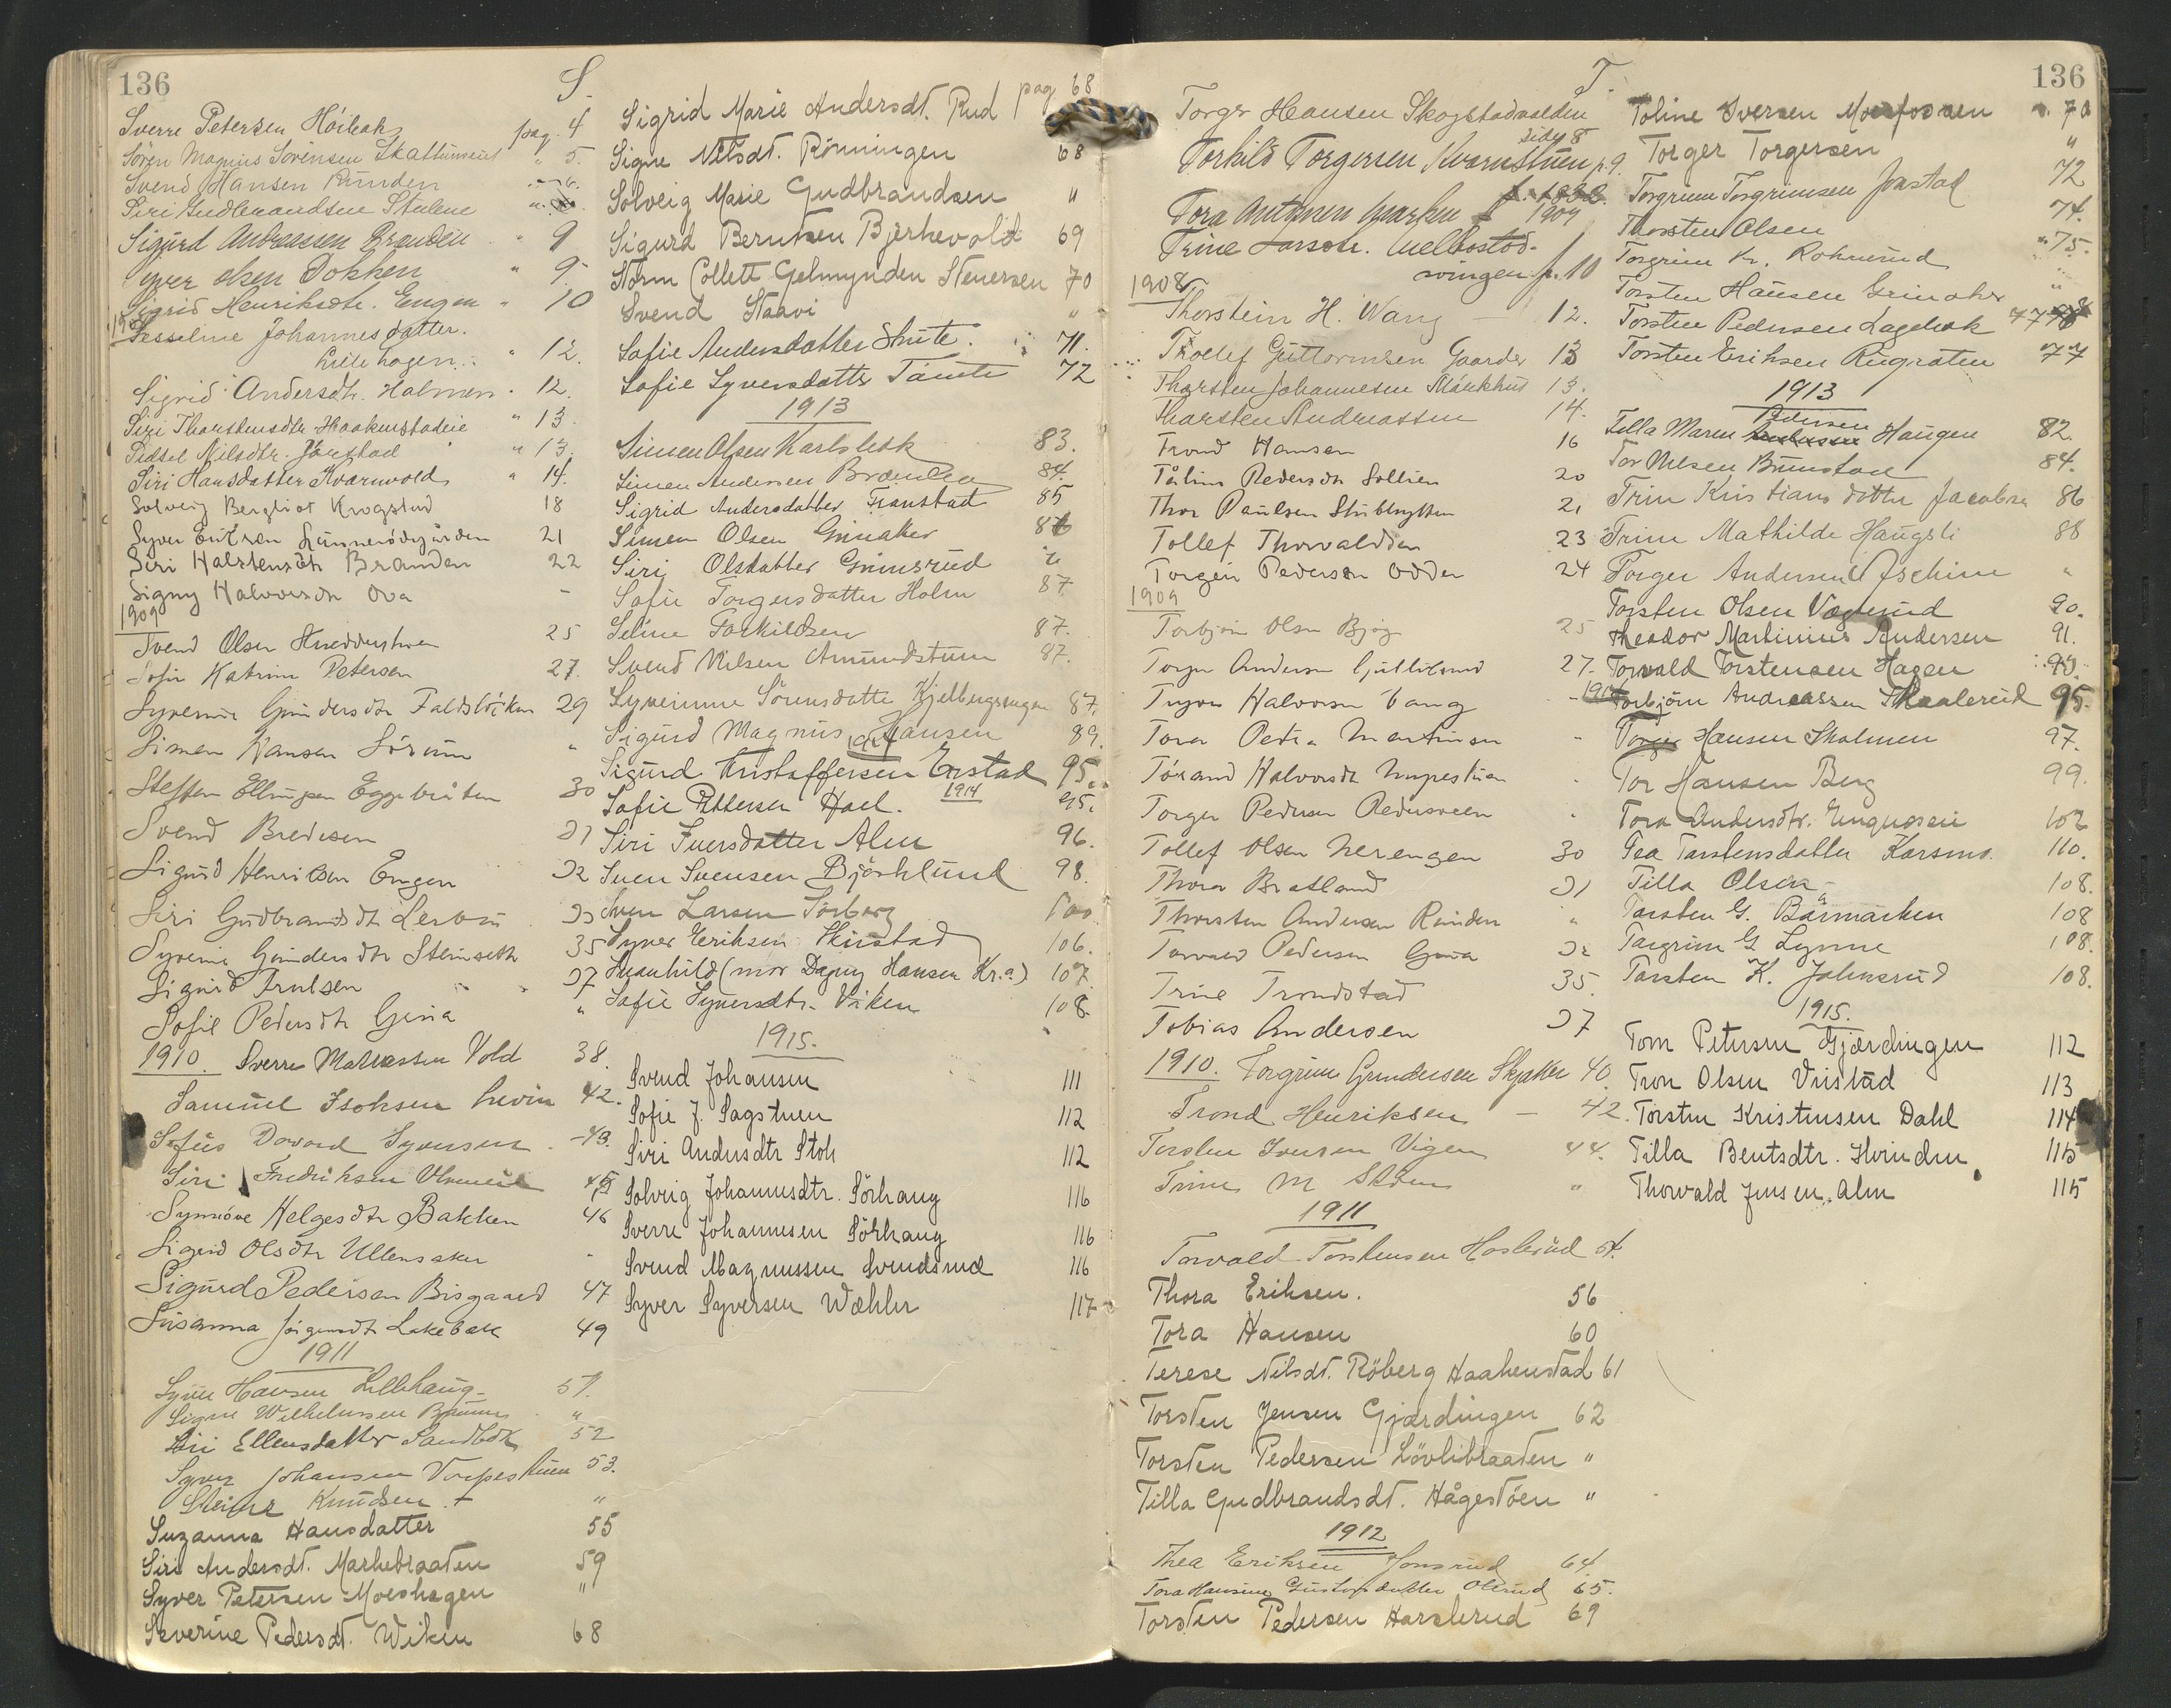 136
S.
Sverre Petersen Höibak pag. 4
Sören Magnus Sörensen Skattumeiet " 5.
Svend Hansen Runden " 6.
Siri Gudbrandsen
Sigurd Andreassen Branden " 9
Syver Olsen Dokken " 9
Sigrid Henriksdtr. Engen " 10
Johannesdatter.
Lillehagen " 12.
Sigrid Andersdtr. Holmen " 12.
Siri Thorstensdtr Haakenstadeie " 13
Sidsel Nilsdtr. Jonstad " 13.
Siri Hansdatter Kvernvold " 14.
Solveig Bergliot Krogstad 18
Syver Eriksen 21
Siri Halstensdtr Branden 22
Signy Halvorsdtr Ova -
1909
Svend Olsen 25
Sofie Katrine Petersen 27.
Syverine Gundersdtr 29
Simen Hansen Sörum "
Steffen Ellingsen Eggebråten 30
Svend Bredesen 31
Sigurd Henriksen Engen 32
Siri Gudbrandsdt 33
Syverine Gundersdtr Steinseth 35
Sigurd Arntsen 37
Sofie Pedersdtr Grina "
1910. Sverre Mathiassen Vold 38.
Samuel Isaksen Levin 42.
Sofus Davard Syversen - 43.
Siri Fredriksen 45
Synnöve Helgesdtr Bakken 46
Sigrid Olsdtr Ullensaker "
Sigurd Pedersen Bisgaard 47
Susanna Jörgensdtr Lakebak 49
1911
Syver Hansen Lillehaug 51.
Signe Wilhelmsen "
Siri Ellensdatter Sandbäk 52
Syver Johansen Vorpestuen 53.
Steinar Knudsen + "
Suzanna Hansdatter 55
Siri Andersdt. Markebraaten 59
Syver Petersen Moeshagen "
Severine Pedersdt. Wiken 68
Sigrid Marie Andersdt. Rud pag 68
Signe Nilsdt. Rönningen 68
Solveig Marie Gudbrandsen "
Sigurd Berntsen Bjerkevold 69
Storm Collett Gelmynden Stenersen 70
Svend Staavi "
Sofie Andersdatter Skute. 71.
Sofie Syversdatter Tömte 72
1913
Simen Olsen Karlsbak 83.
Simen Andersen 84.
Sigrid Andersdatter Franstad 85
Simen Olsen Grinaker 86
Siri Olsdatter Grinsrud "
Sofie Torgersdatter Holm 87
Seline Torkildsen 87.
Svend Nilsen Amundstuen 87.
Syverinne Sörensdatter 87.
Sigurd Magnus Hansen 89.
Sigurd Kristoffersen Erstad 95.
1914
Sofie Pettersen Hoel. 95.
Siri Iversdatter Alm 96.
Sven Svensen Björklund 98.
Sven Larsen Sörberg 100
Syver Eriksen Skiostad 106.
Svanhild (mor Dagny Hansen Kr.a) 107.
Sofie Syversdtr. Viken 108.
1915.
Svend Johansen 111
Sofie J. Sagstuen 112
Siri Andersdtr Stoh 112
Solveig Johannesdtr. Sörhaug 116
Sverre Johannesen Sörhaug 116
Svend Magnussen Svendsrud 116
Syver Syversen Wæhler 117
136
T.
Torger Hansen Skogstadvolden
side 8
Torkild Torgersen Kvernstuen p. 9.
Tora Antonsen 1907
Trine Larsdtr. Melbostad-
svingen p. 10
1908
Thorstein H. Wang - 12.
Thollef Guttormsen Gaarder 13
Thorsten Johannesen 13.
Thorsten Andreassen 14.
Trond Hansen 16
Pedersdtr Sollien 20
Thor Paulsen Stubbhytten 21
Tollef Thorvaldsen 23
Torgen Pedersen Odden 24
1909
Torbjörn Olsen Bjög 25
Torger Andersen 27.
Trygve Halvorsen Vang -
Tora Petra Martinsen "
Törand Halvorsdt "
Torger Pedersen Pedersveen "
Tollef Olsen Nerengen 30
Thora Bratland 31
Thorsten Andersen Runden "
Torvald Pedersen Grina 32
Trine Trondstad 35.
Tobias Andersen 37
1910. Torgrim Gundersen Skjaker 40.
Trond Henriksen - 42.
Torsten Iversen Vigen 44.
Trine M "
1911
Torvald Torstensen Haslerud
Thora Eriksen. 56
Tora Hansen 60
Terese Nilsdt. Röberg Haakenstad 61
Torsten Jensen Gjærdingen 62
Torsten Pedersen Lövlibraaten "
Tilla Gudbrandsdt. Hågestöen "
1912
Thea Eriksen Jonsrud 64.
Tora Hansine Gustavsdatter Olsrud 65.
Torsten Pedersen Harslerud 69
Toline Iversen Moesfossen 70
Torger Torgersen "
Torgrim Torgrimsen Jonstad 72
Thorsten Olsen 74.
Torgrim Kr. Rohnerud " 75.
Torsten Hansen Grinaker "
Torsten Pedersen Lagebak 77
Torsten Eriksen Rugraten 77
1913
Pedersen
Tilla Maren Haugen 82.
Tor Nilsen Brunstad 84.
Trine Kristiansdatter Jacobsen 86
Trine Mathilde Haugsli 88
Torger Andersen "
Torsten Olsen Vagerud 90.
Theodor Martinius Andersen 91.
Torvald Torstensen Hagen 93.
1914
Torbjörn Andreassen Skaalerud 95.
Torger Hansen Skolmen 97.
Tor Hansen Berg 99.
Tora Andersdtr. 102
Tea Torstensdatter Karsmo. 110.
Tilla Olsen - 108.
Torsten G. Bärmarken 108
Torgrim G. Lynne 108.
Torsten K. Johnsrud 108.
1915.
Tom Petersen Gjærdingen 112
Tron Olsen Vristad 113
Torsten Kristensen Dahl 114
Tilla Bentsdtr. Hvinden 115
Thorvald Jensen, Alm 115